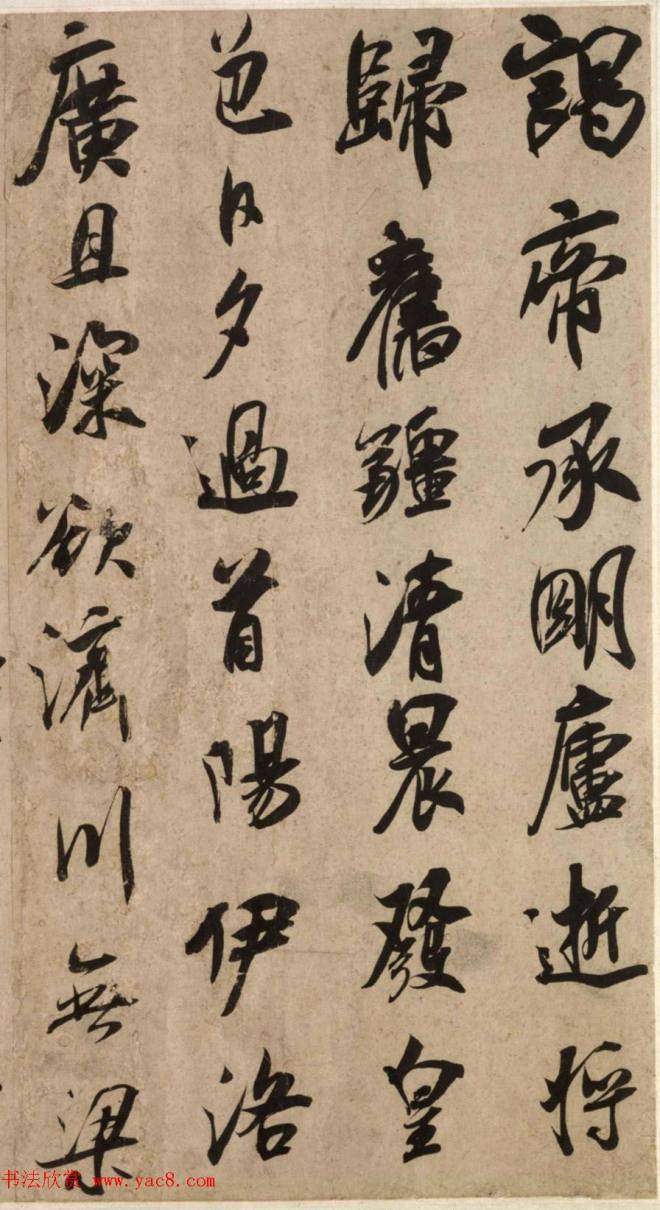 謁帝承明廬逝將
歸舊疆清晨發皇
邑日夕過首陽伊洛
廣且深欲濟川無梁
书法欣赏 www.yac8.com